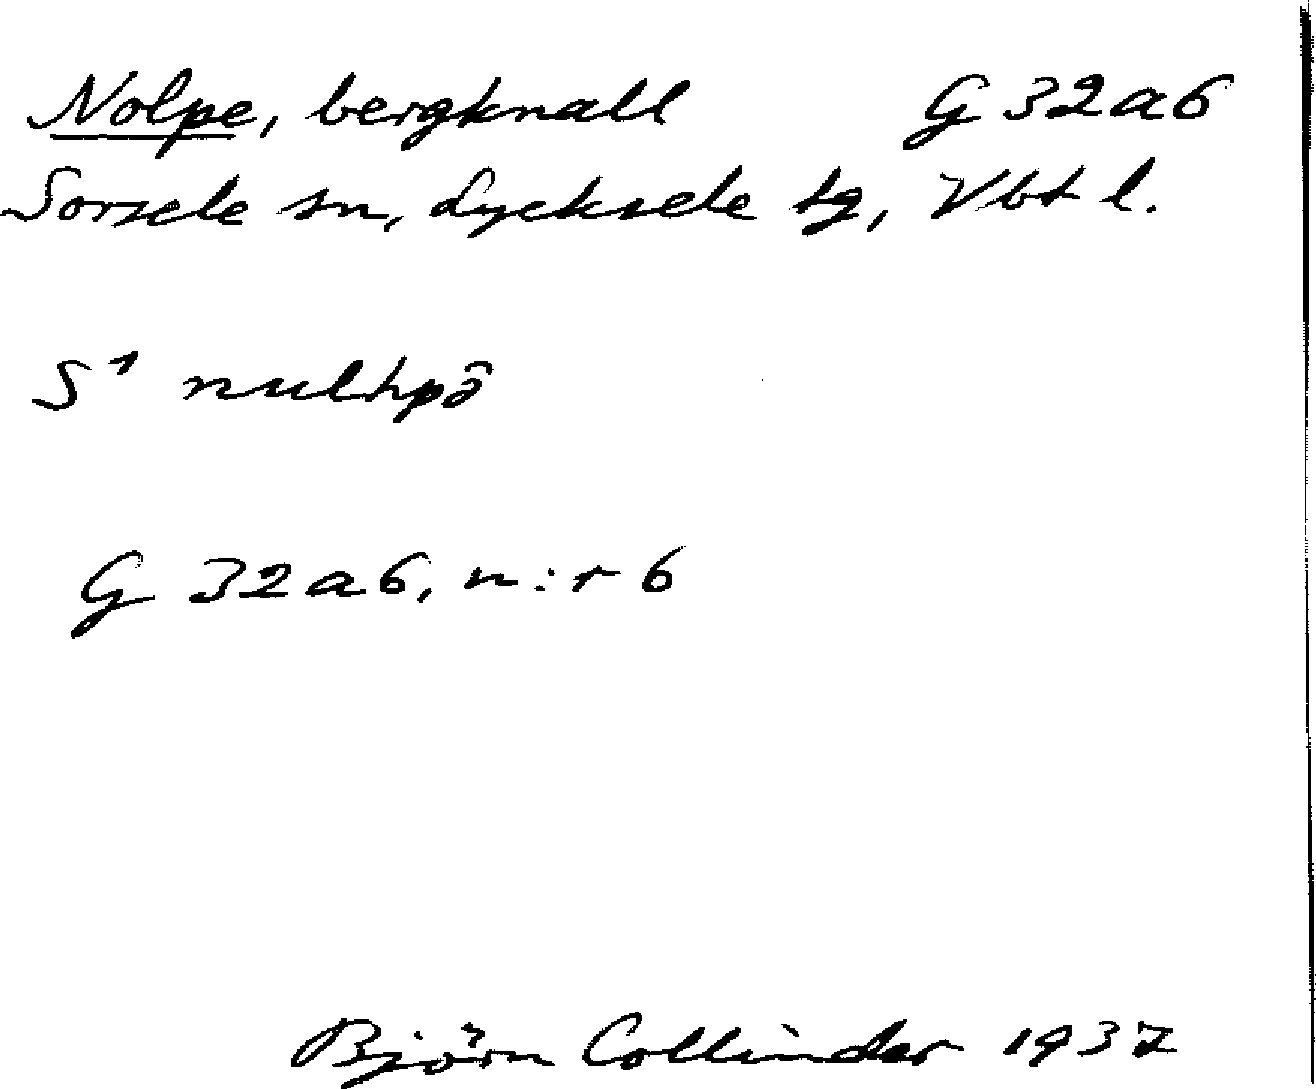 Nolpe, bergknall G 32a6
Sorsele sn, Lycksele tg, Vbt l.
S¹ nulhpə̑
G 32a6, n:r 6
Björn Collinder 1937